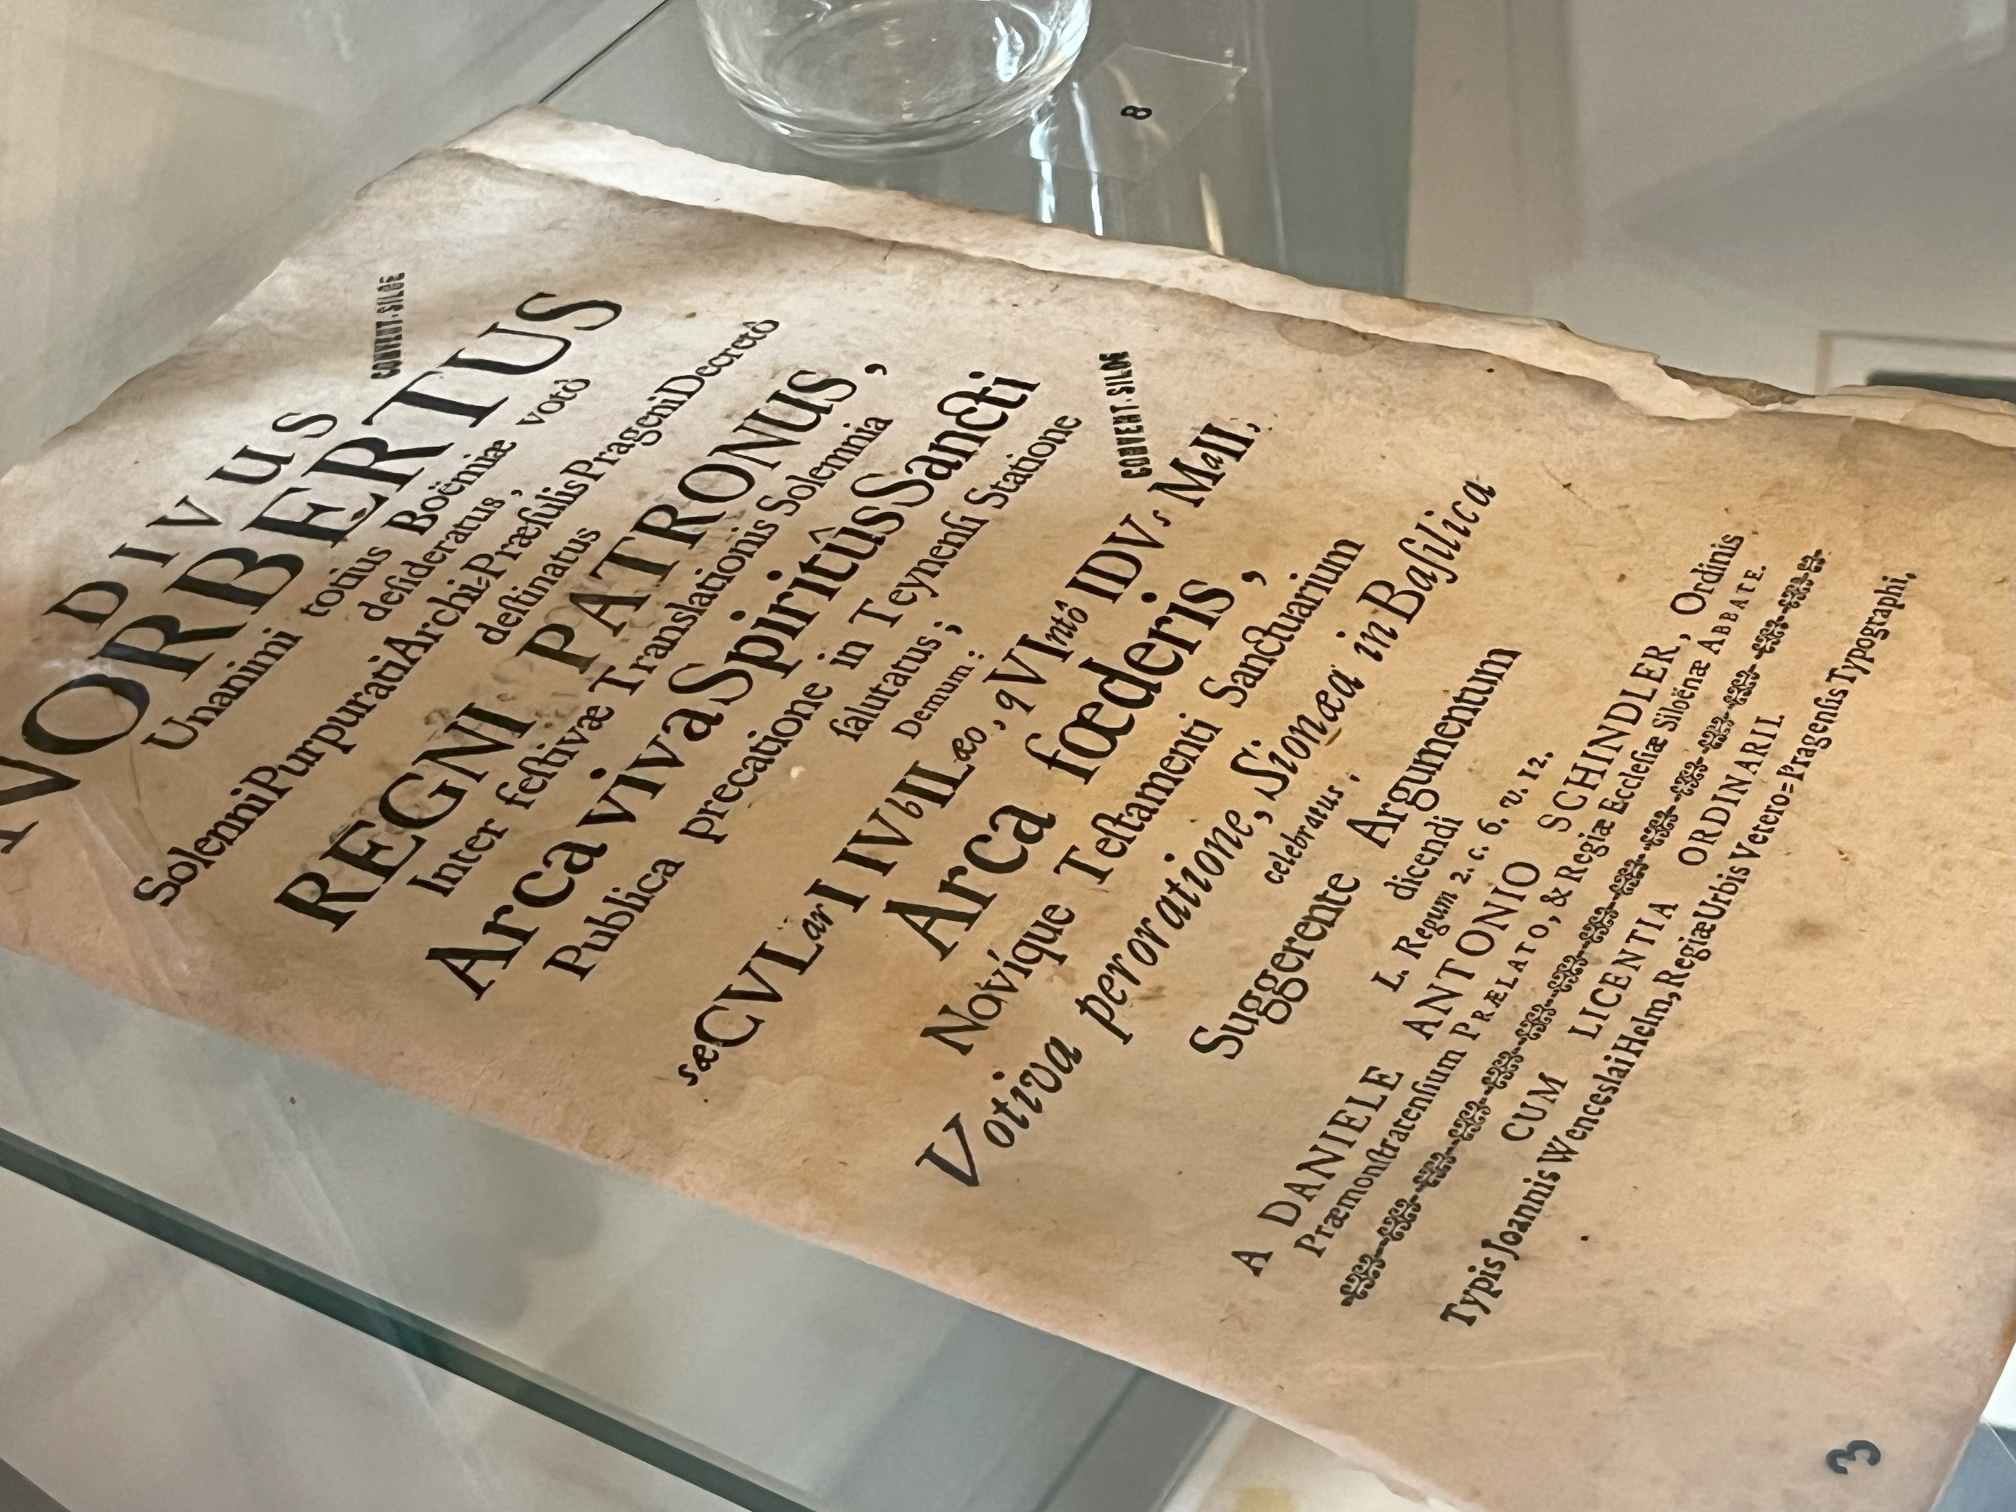 DIVUS
NORBERTUS
CONVENT. SILOE
Unanimi totius Boëmiæ votô
deſideratus,
Solenni Purpurati Archi-Præſulis Prageni Decretô
deſtinatus
REGNI PATRONUS,
Inter feſtivæ Translationis Solemnia
Arca viva Spiritûs Sancti
Publica precatione in Teynenſi Statione
ſalutatus;
Demum:
CONVENT. SILOE
sæCVLarI IVbILæo, qVIntô IDVs MaII,
Arca fœderis,
Novíque Teſtamenti Sanctuarium
Votiva peroratione, Sionæa in Baſilica
celebratus,
Suggerente Argumentum
dicendi
L. Regum 2. c. 6. v. 12.
A DANIELE ANTONIO SCHINDLER, Ordinis
Præmonſtratenſium PRÆLATO, & Regiæ Eccleſiæ Siloënæ ABBATE.
CUM LICENTIA ORDINARII.
Typis Joannis Wenceslai Helm, Regiæ Urbis Vetero=Pragenſis Typographi.
3
8